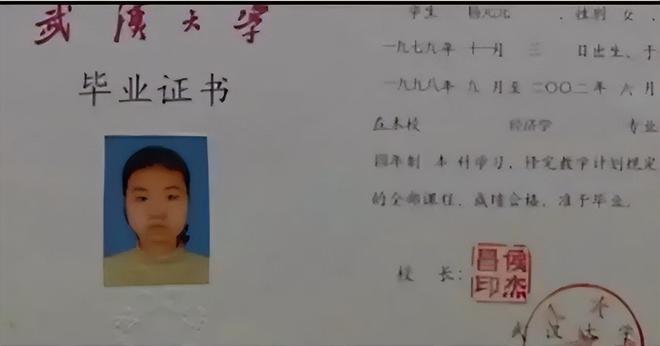 武汉大学
毕业证书
学生 杨元元 ，性别 女 ，
一九七九年 十一月 三 日出生，于
一九九八年 九 月至 二〇〇二年 六 月
在本校 经济学 专业
四年制 本 科学习，修完教学计划规定
的全部课程，成绩合格，准予毕业。
校 长：
侯杰昌印
武汉大学